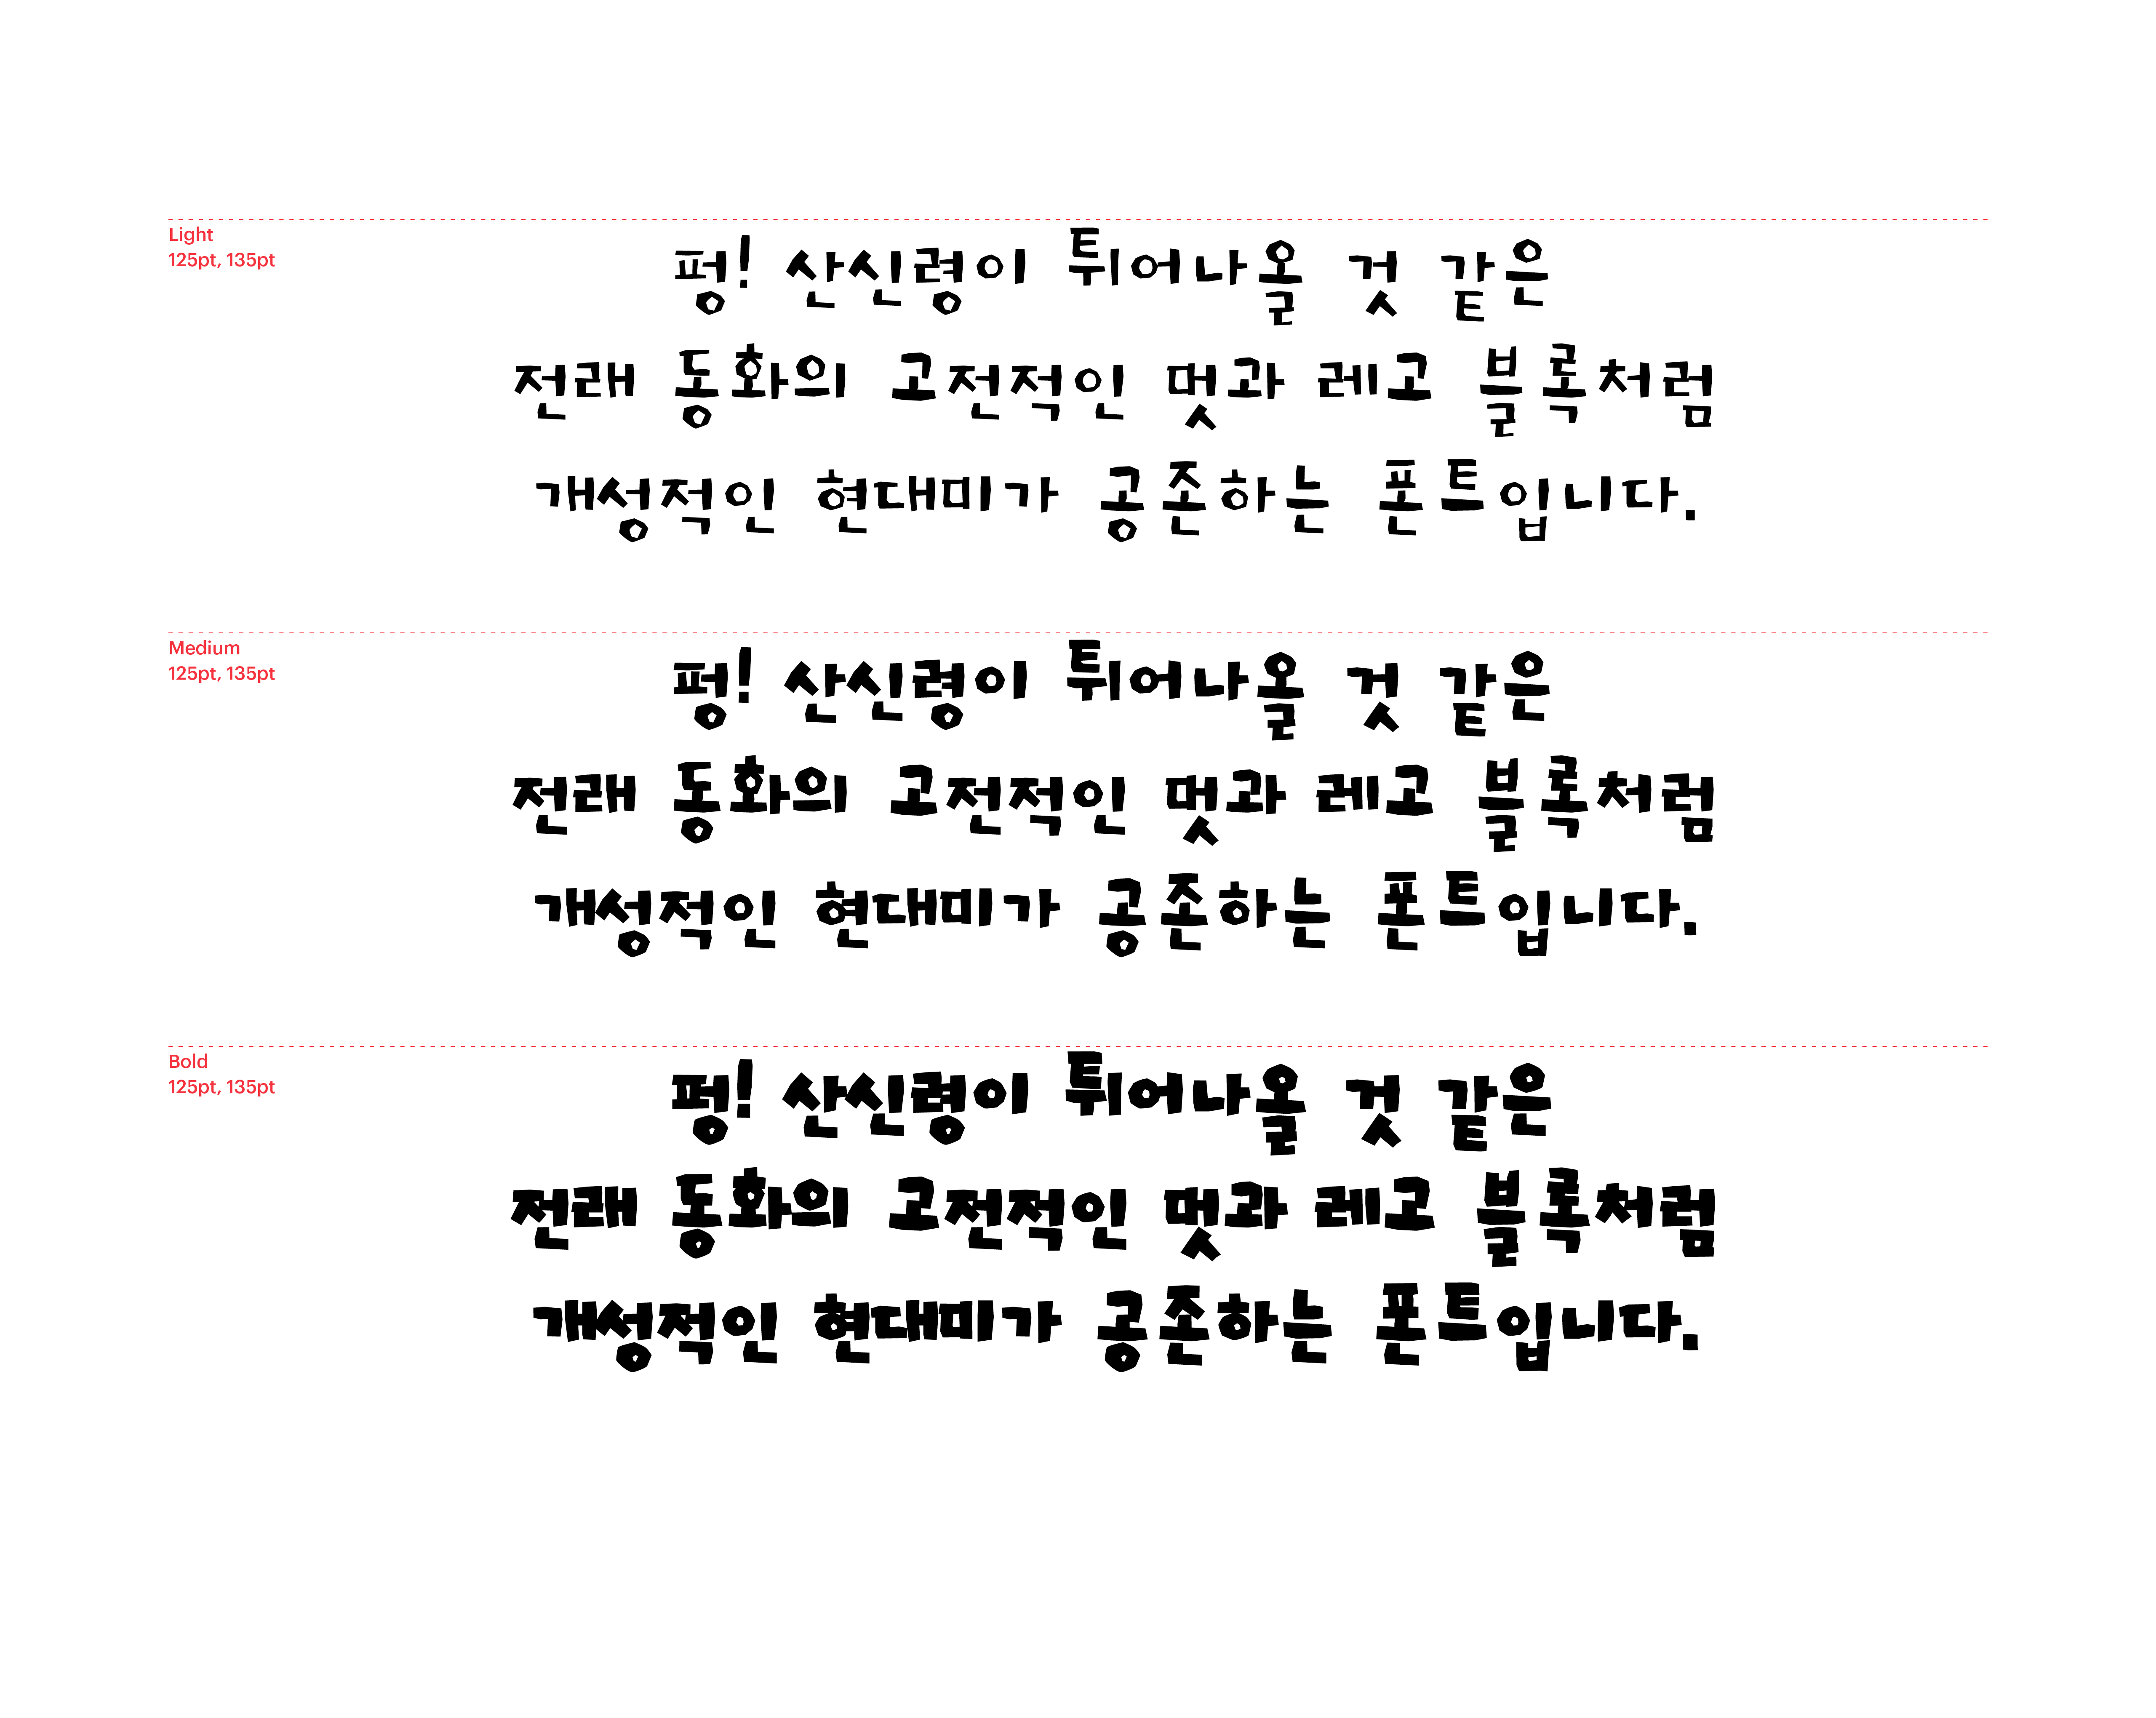 Light
125pt, 135pt
펑! 산신령이 튀어나올 것 같은
전래 동화의 고전적인 멋과 레고 블록처럼
개성적인 현대미가 공존하는 폰트입니다.
Medium
125pt, 135pt
펑! 산신령이 튀어나올 것 같은
전래 동화의 고전적인 멋과 레고 블록처럼
개성적인 현대미가 공존하는 폰트입니다.
Bold
125pt, 135pt
펑! 산신령이 튀어나올 것 같은
전래 동화의 고전적인 멋과 레고 블록처럼
개성적인 현대미가 공존하는 폰트입니다.